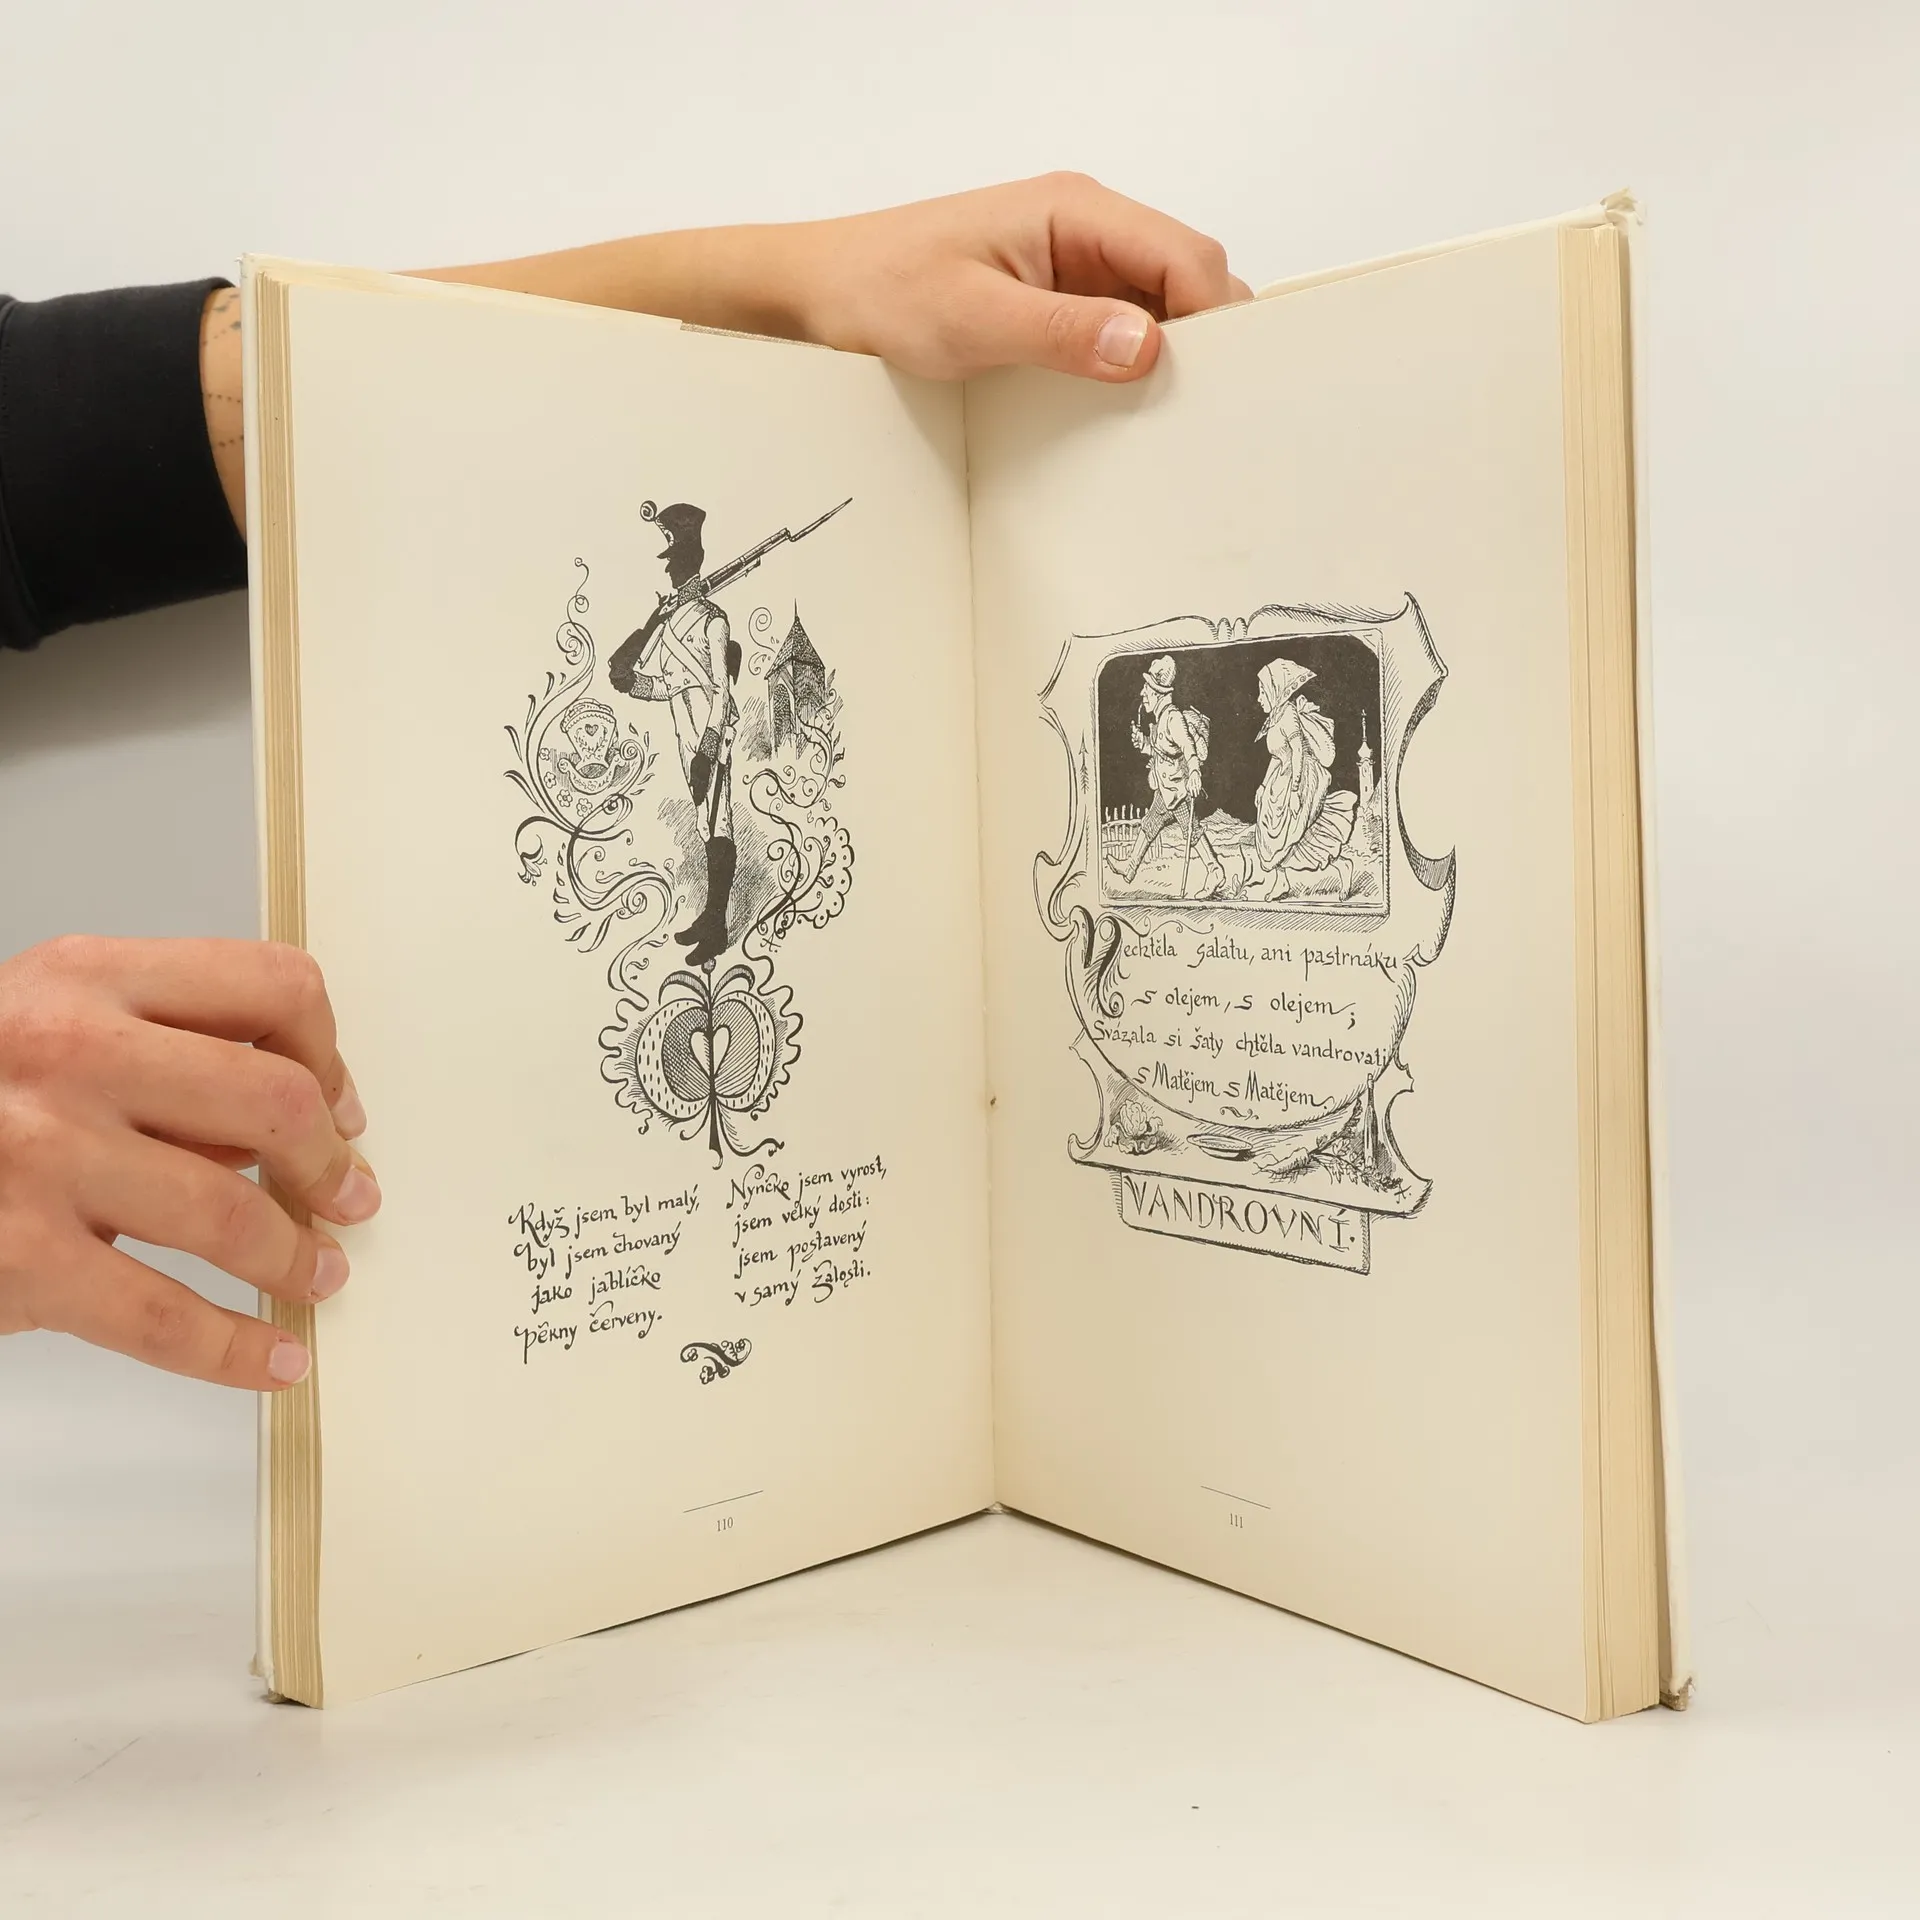 Když jsem byl malý,
byl jsem chovaný
jako jablíčko
pěkny červeny.
Nynčko jsem vyrost,
jsem velký dosti:
jsem postavený
v samý žalosti.
110
Nechtěla salátu, ani pastrnáku
s olejem, s olejem;
Svázala si šaty chtěla vandrovati
s Matějem s Matějem.
VANDROVNÍ.
111